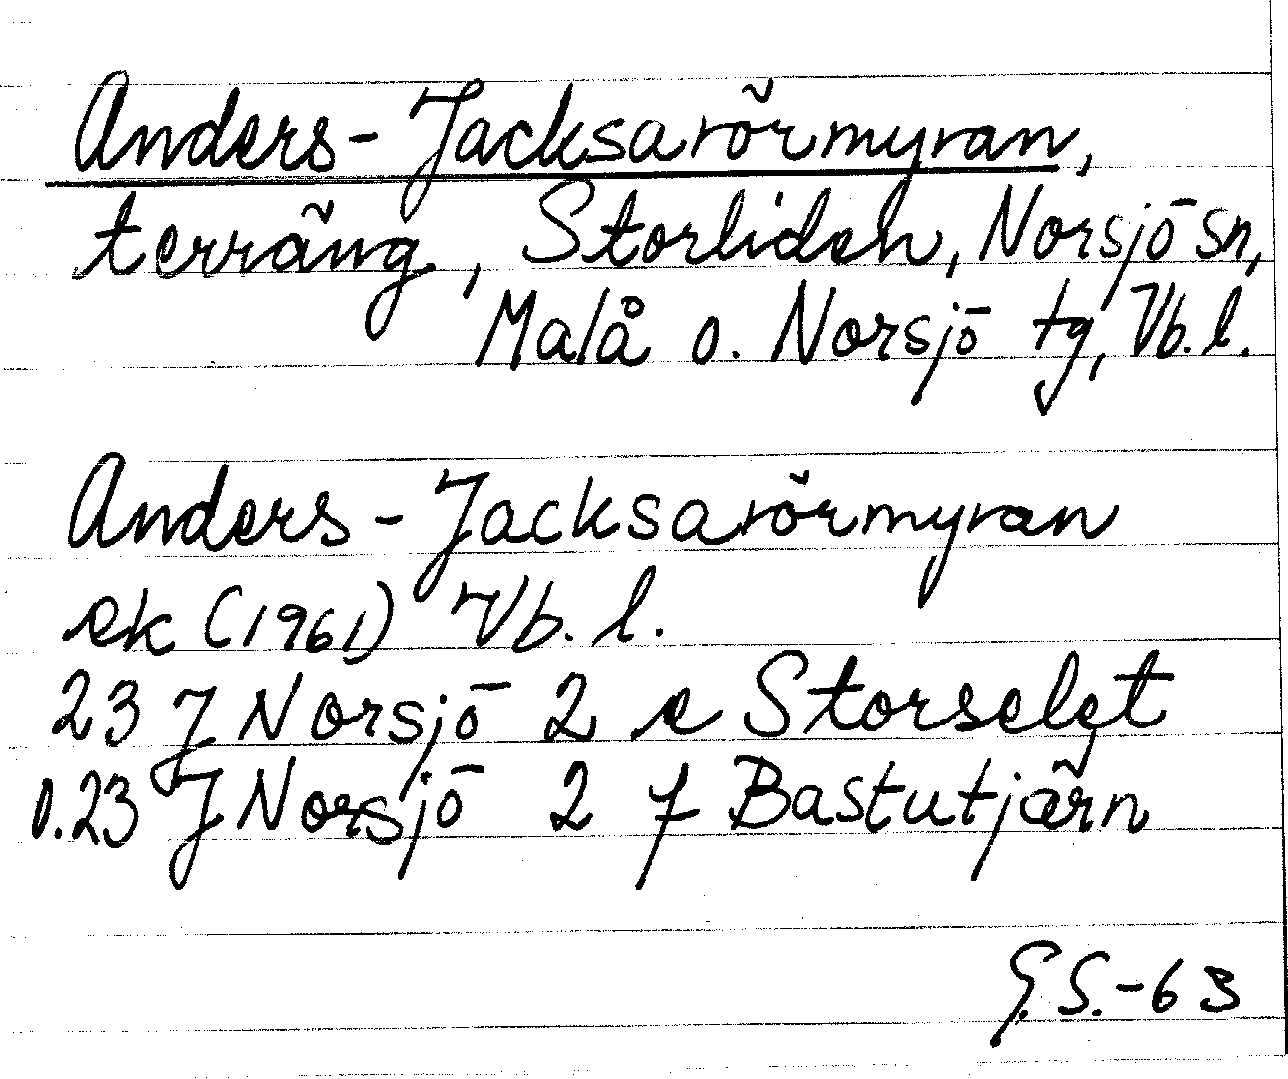 Anders-Jacksarörmyran,
terräng, Storliden, Norsjö sn,
Malå o. Norsjö tg, Vb. l.
Anders-Jacksarörmyran
ek (1961) Vb. l.
23 J Norsjö 2 e Storselet
o. 23 J Norsjö 2 f Bastutjärn
G.S.-63